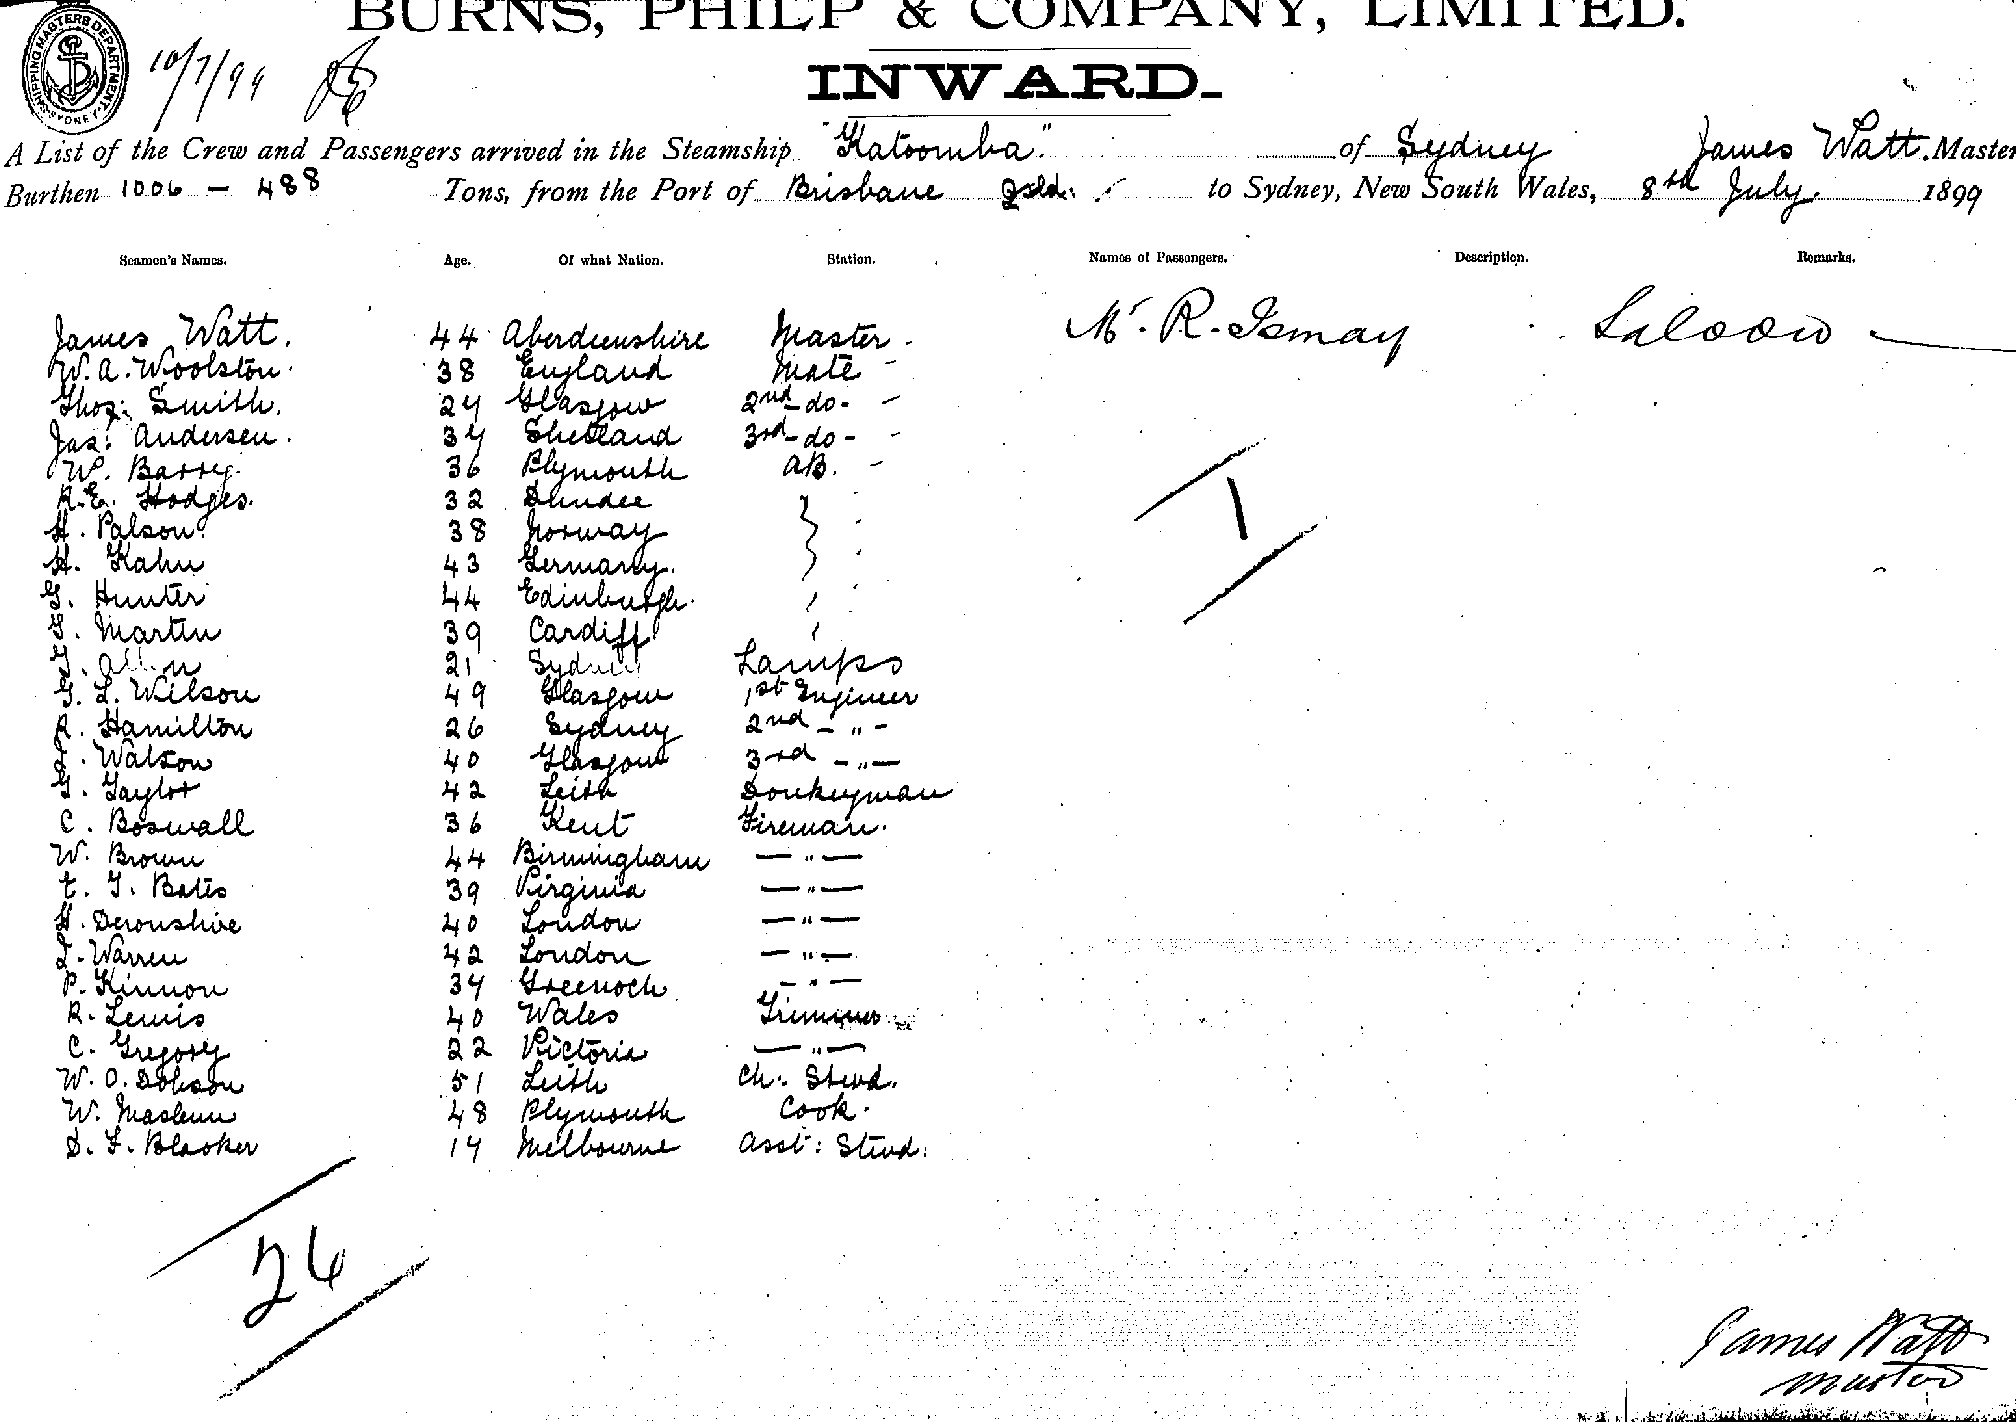 BURNS, PHILP & COMPANY, LIMITED.
INWARD.
SHIPPING MASTERS DEPARTMENT. SYDNEY
10/7/99
A List of the Crew and Passengers arrived in the Steamship "Katoomba" of Sydney James Watt. Master
Burthen 1006 – 488 Tons, from the Port of Brisbane Qsld. to Sydney, New South Wales, 8th July. 1899
Seamen's Names. Age. Of what Nation. Station. Names of Passengers. Description. Remarks.
James Watt. 44 Aberdeenshire Master Mr. R. Ismay Saloon
W. A. Woolston 38 England Mate
Thos: Smith. 24 Glasgow 2nd – do –
Jas: Andersen. 34 Shetland 3rd – do –
W. Barry. 36 Plymouth AB.
R. E. Hodges. 32 Dundee
H. Palson 38 Norway
H. Kahn 43 Germany.
G. Hunter 44 Edinburgh.
Martin 39 Cardiff
21 Sydney Lamps
G. L. Wilson 49 Glasgow 1st Engineer
R. Hamilton 26 Sydney 2nd – " –
Watson 40 Glasgow 3rd – " –
Taylor 42 Leith Donkeyman
C. Boswall 36 Kent Fireman.
W. Brown 44 Birmingham – " –
Bates 39 Virginia – " –
H. Devonshire 40 London – " –
Warren 42 London – " –
P. Kinnon 34 Greenock – " –
R. Lewis 40 Wales Trimmer
C. Gregory 22 Victoria – " –
W. O. Dobson 51 Leith Ch. Stwd.
W. Maslem 48 Plymouth Cook.
Blacker 14 Melbourne Asst: Stwd.
1
26
James Watt
Master